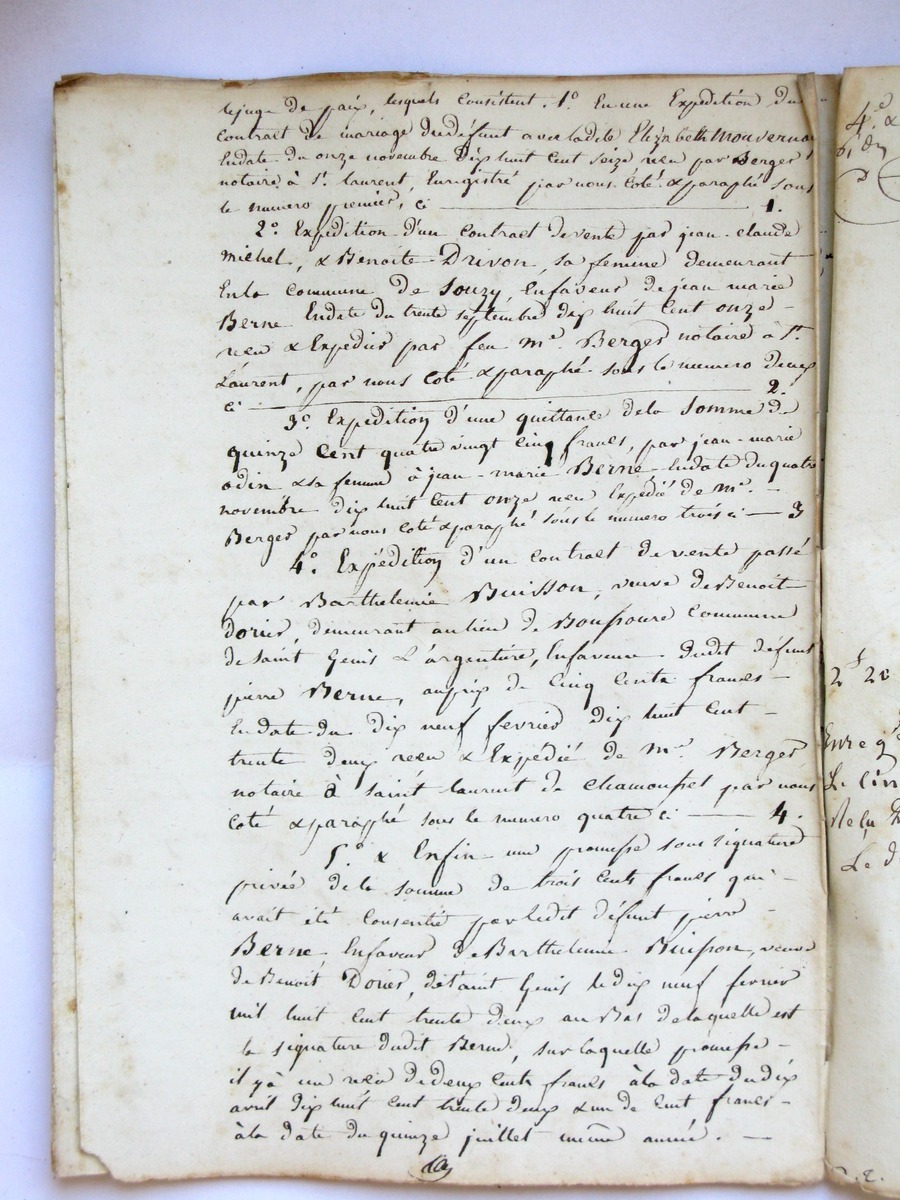 le juge de paix, lesquels consistent. 1.o En une Expedition du
contract de mariage du défunt avec ladite Elizabeth Mouvernay
En date du onze novembre dix huit cent seize reçu par Berger
notaire à St. laurent, Enregistré par nous Coté & paraphé sous
le numero premier, Ci 1.
2.o Expédition d'un Contract de vente par jean-claude
michel, & Benoite Drivon, sa femme demeurant
En la Commune de Souzy, En faveur de jean marie
Berne En date du trente septembre dix huit Cent onze
reçu & Expédié par feu m.e Berger notaire à St.
Laurent, par nous Coté & paraphé sous le numero deux
Ci 2.
3.o Expédition d'une quittance de la Somme de
quinze Cent quatre vingt Cinq francs, par jean-marie
odin & sa femme à jean-marie Berne En date du quatre
novembre dix huit Cent onze reçu Expédié de M.e
Berger par nous Coté & paraphé sous le numero trois Ci 3
4.o Expédition d'un Contract de vente passé
par Barthelemie Buisson, veuve de Benoit
Dorier, demeurant au lieu de Commune
de Saint Genis L'argentière, En faveur dudit défunt
pierre Berne, au prix de Cinq Cents francs
En date du dix neuf fevrier dix huit Cent
trente deux reçu & Expédié de M.e Berger
notaire à Saint laurent de Chamousset par nous
Coté & paraphé sous le numero quatre Ci 4.
5.o & Enfin une promesse sous signature
privée de la somme de trois Cents francs qui
avait été Consentie par ledit défunt pierre
Berne En faveur de Barthelemie Buisson, veuve
de Benoit Dorier, de Saint Genis le dix neuf fevrier
mil huit Cent trente deux au Bas de laquelle est
la signature dudit Berne, sur laquelle promesse
il y à un reçu de deux Cents francs à la date du dix
avril dix huit Cent trente deux & un de Cent francs
à la date du quinze juillet même année.
4.o &
2f 20
Enreg
Le Cin
Reçu
Le d